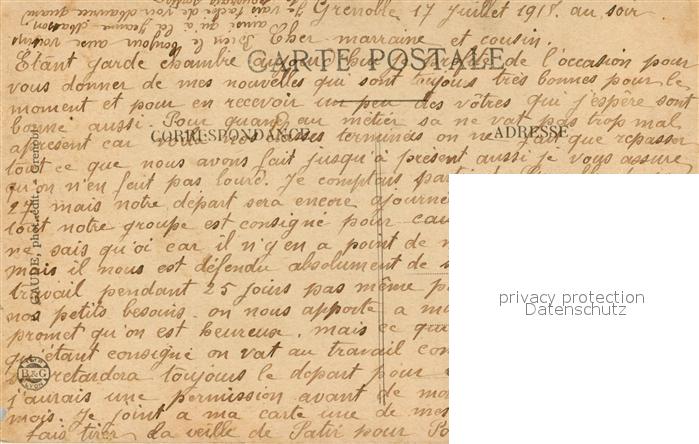 Grenoble 17 Juillet 1918. au soir
Cher marraine et cousin.
CARTE POSTALE
Etant garde chambre aujourd'hui je profite de l'occasion pour
vous donner de mes nouvelles qui sont toujours très bonnes pour le
moment et pour en recevoir un peu des vôtres qui j'espère sont
bonne aussi. Pour quand au métier sa ne vat pas trop mal
CORRESPONDANCE ADRESSE
apresent car nos classes terminés on ne fait que repasser
tout ce que nous avons fait jusqu'à présent aussi je vous assure
qu'on n'en fait pas lourd. Je comptais
27 mais notre départ sera encore ajourné
tout notre groupe est consigné pour
ne sais qu'oi car il n'y en a point de
mais il nous est défendu absolument de
travail pendant 25 jours pas même
nos petits besoins. on nous apporte a
promet qu'on est heureuse. mais ce
qu'étant consigné on vat au travail
retardera toujours le depart pour
j'aurais une permission avant de
mois. Je joint a ma carte une de mes
fais tirer la veille de Partir pour
GAUDE, phot.-édit. - Grenoble
B&G
privacy protection
Datenschutz